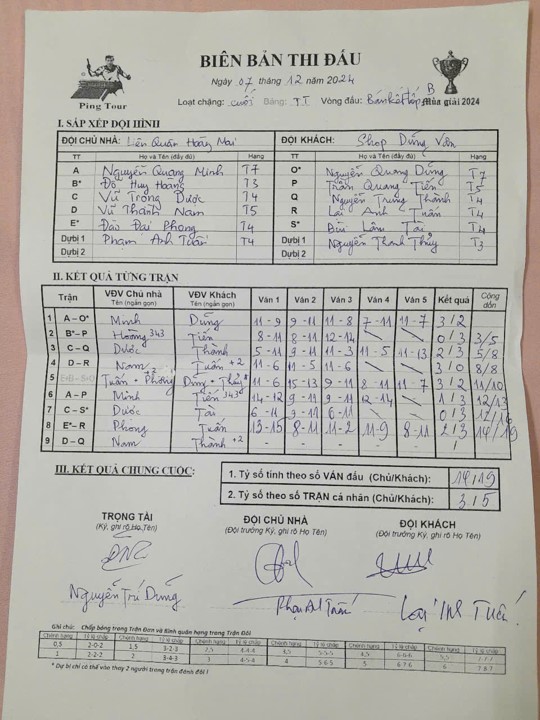 BIÊN BẢN THI ĐẤU
Ngày 07 tháng 12 năm 2024
Ping Tour
Loạt chặng: cuối Bảng: TT Vòng đấu: Bán kết tốp B Mùa giải 2024
I. SẮP XẾP ĐỘI HÌNH
ĐỘI CHỦ NHÀ: Liên Quân Hoàng Mai ĐỘI KHÁCH: Shop Dũng Vân
TT Họ và Tên (đầy đủ) Hạng TT Họ và Tên (đầy đủ) Hạng
A Nguyễn Quang Minh T7 O* Nguyễn Quang Dũng T7
B* Đỗ Huy Hoàng T3 P Trần Quang Tiến T5
C Vũ Trọng Dược T4 Q Nguyễn Trung Thành T4
D Vũ Thành Nam T5 R Lại Anh Tuấn T4
E* Đào Đại Phong T4 S* Bùi Lâm Tài T4
Dự bị 1 Phạm Anh Tuấn T4 Nguyễn Thanh Thủy T3
Dự bị 2 Dự bị 2
II. KẾT QUẢ TỪNG TRẬN
Trận VĐV Chủ nhà Tên (ngắn gọn) VĐV Khách Tên (ngắn gọn) Ván 1 Ván 2 Ván 3 Ván 4 Ván 5 Kết quả Cộng dồn
1 A – O* Minh Dũng 11 - 9 9 - 11 11 - 8 7 - 11 11 - 7 3 / 2
2 B* – P Hoàng 343 Tiến 8 - 11 8 - 11 12 - 14 0 / 3 3/5
3 C – Q Dược Thành 5 - 11 9 - 11 11 - 3 11 - 5 11 - 13 2 / 3 5/8
4 D – R Nam Tuấn +2 11 - 6 11 - 5 11 - 6 3 / 0 8/8
5 Tuấn + Phong Dũng + Thủy 11 - 6 15 - 13 9 - 11 8 - 11 11 - 7 3 / 2 11/10
6 A – P Minh Tiến 343 14 - 12 9 - 11 9 - 11 12 - 14 1 / 3 12/13
7 C – S* Dược Tài 6 - 11 9 - 11 6 - 11 0 / 3 12/16
8 E* – R Phong Tuấn 13 - 15 8 - 11 11 - 2 11 - 9 8 - 11 2 / 3 14/19
9 D – Q Nam Thành +2 - - - - - /
III. KẾT QUẢ CHUNG CUỘC:
1. Tỷ số tính theo số VÁN đấu (Chủ/Khách): 14/19
2. Tỷ số theo số TRẬN cá nhân (Chủ/Khách): 3/5
TRỌNG TÀI ĐỘI CHỦ NHÀ ĐỘI KHÁCH
(Ký, ghi rõ Họ Tên) (Đội trưởng Ký, ghi rõ Họ Tên) (Đội trưởng Ký, ghi rõ Họ Tên)
Nguyễn Trí Dũng Phạm Anh Tuấn Lại Anh Tuấn
Ghi chú: Chấp bóng trong Trận Đơn và Bình quân hạng trong Trận Đôi
Chênh hạng Tỷ lệ chấp Chênh hạng Tỷ lệ chấp Chênh hạng Tỷ lệ chấp Chênh hạng Tỷ lệ chấp Chênh hạng Tỷ lệ chấp Chênh hạng Tỷ lệ chấp
0,5 2-0-2 1,5 3-2-3 2,5 4-4-4 3,5 5-5-5 4,5 6-6-6 5,5 7-7-7
1 2-2-2 2 3-4-3 3 4-5-4 4 5-6-5 5 6-7-6 6 7-8-7
* Dự bị chỉ có thể vào thay 2 người trong trận đánh đôi !